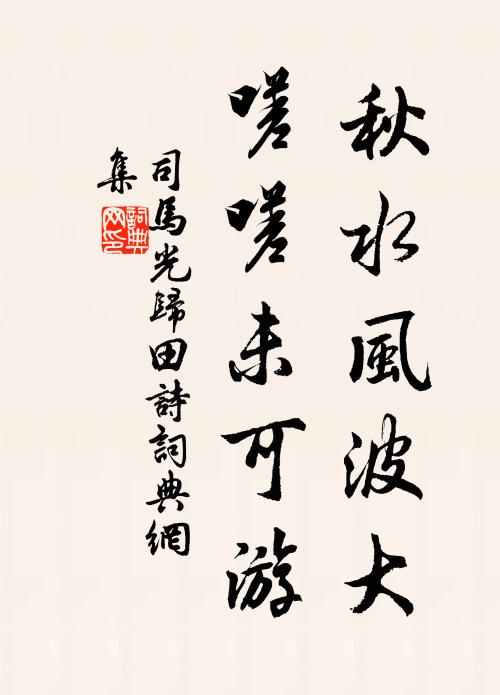 秋水風波大
嗟嗟未可游
司馬光歸田詩詞典網
集
詞典
网印